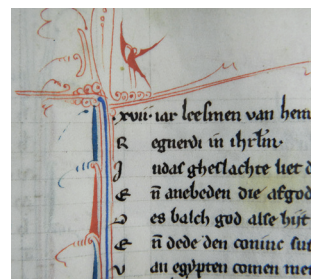 xvii· iar leesmen van hem
R egnerdi in ihrl̅m·
J udas gheslachte liet d
E n̅ anebeden die afgod
D es balch god alse hijt
E n̅ dede den coninc su
V an egypten comen met